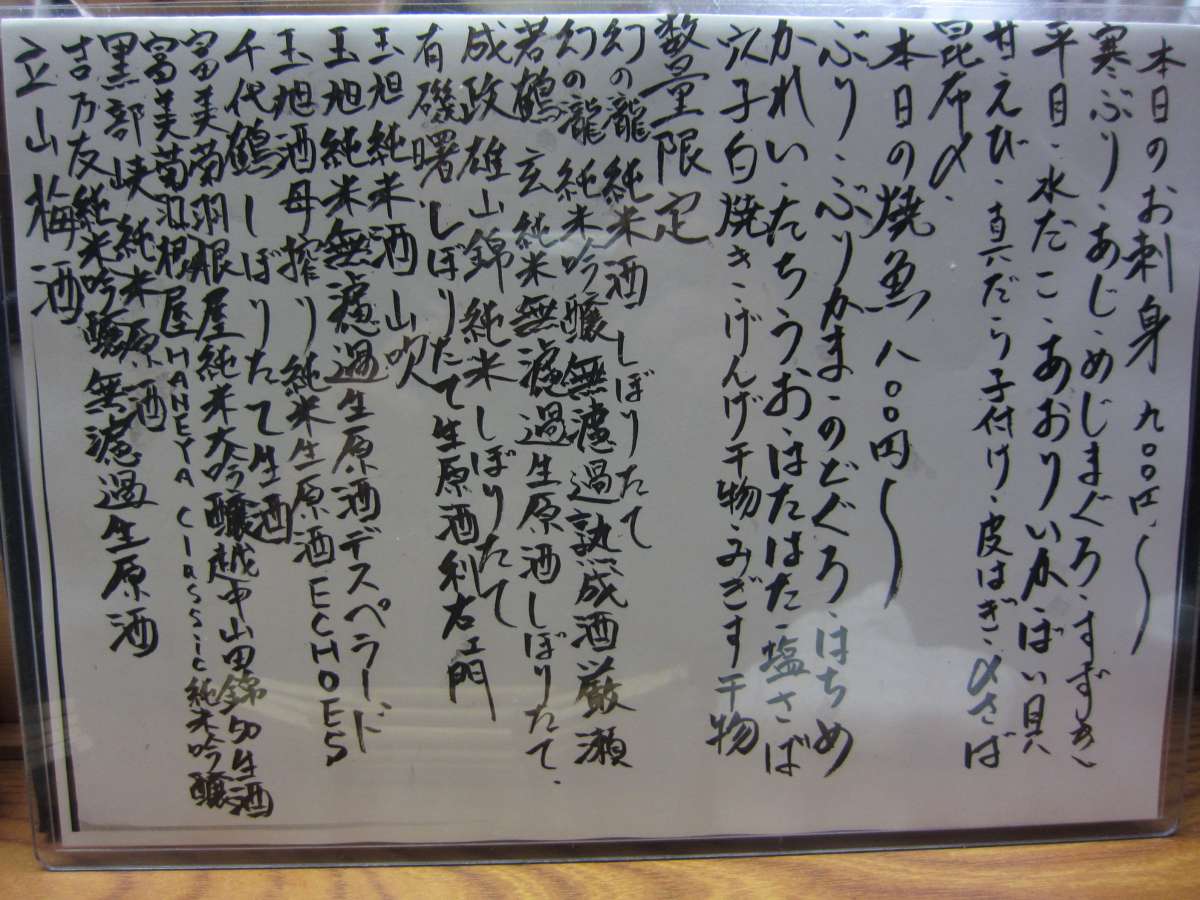 本日のお刺身 九〇〇円〜
寒ぶり・あじ・めじまぐろ・すずき
平目・水だこ・あおりいか・ばい貝
甘えび・真だら子付け・皮はぎ・〆さば
昆布〆
本日の焼魚 八〇〇円〜
ぶり・ぶりかま・のどぐろ・はちめ
かれい・たちうお・はたはた・塩さば
穴子白焼き・げんげ干物・みぎす干物
数量限定
幻の瀧 純米酒 しぼりたて
幻の瀧 純米吟醸無濾過熟成酒厳瀬
若鶴 玄 純米無濾過生原酒しぼりたて
成政 雄山錦 純米しぼりたて
有磯曙 しぼりたて生原酒利右エ門
玉旭 純米酒 山吹
玉旭 純米無濾過生原酒デスペラード
玉旭 酒母搾り純米生原酒ECHOES
千代鶴 しぼりたて生酒
富美菊羽根屋純米大吟醸越中山田錦50生酒
富美菊羽根屋HANEYA Classic純米吟醸
黒部峡 純米原酒
吉乃友純米吟醸無濾過生原酒
立山梅酒